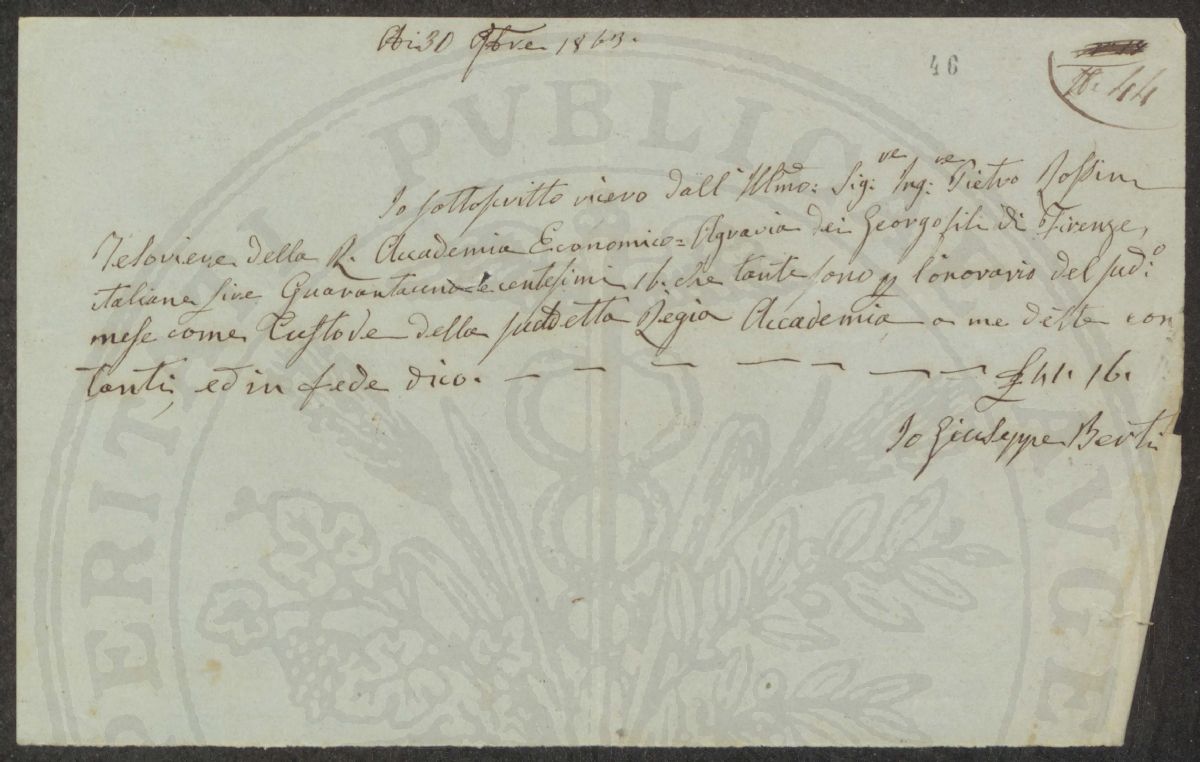 Adi 30 9bre 1863.
46
N: 44
Io sottoscritto ricevo dall' Illmo: Sig:re Ing:re Pietro Rossini
Tesoriere della R. Accademia Economico=Agraria dei Georgofili di Firenze,
italiane lire Quarantuna e centesimi 16. che tante sono p l'onorario del sud:o
mese come Custode della suddetta Regia Accademia a me dette con
tanti, ed in fede dico. — — — — — — — £ 41. 16.
Io Giuseppe Berti
PERITATI PUBLICAE AUGE